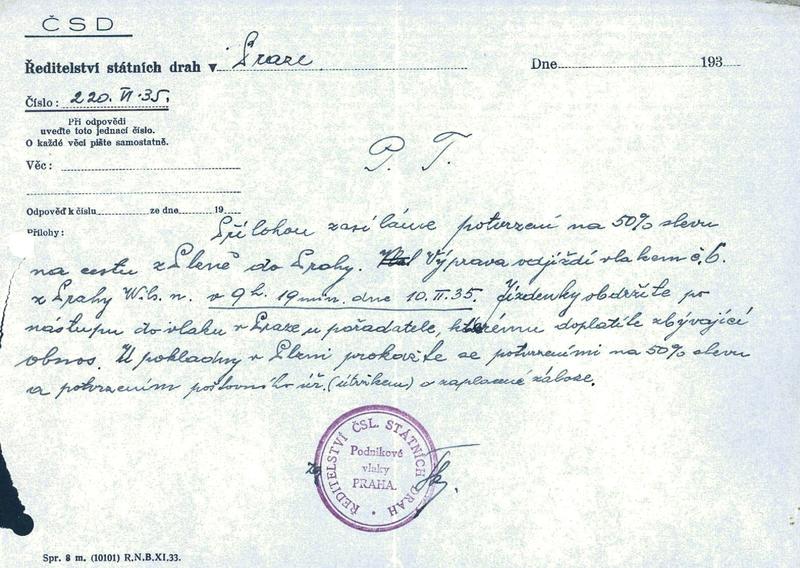 ČSD
Ředitelství státních drah v Praze Dne 193
Číslo: 220. VI. 35.
Při odpovědi
uveďte toto jednací číslo.
O každé věci pište samostatně.
P. T.
Věc:
Odpověď k číslu ze dne 19
Přílohy:
Přílohou zasíláme potvrzení na 50% slevu
na cestu z Plzně do Prahy. Výprava odjíždí vlakem č. 6.
z Prahy W. b. n. v 9 h. 19 min. dne 10. II. 35. Jízdenky obdržíte po
nástupu do vlaku v Praze, u pořadatele, kterému doplatíte zbývající
obnos. U pokladny v Plzni prokažíte se potvrzeními na 50% slevu
a potvrzením poštovního úř. (útržkem) o zaplacené záloze.
ŘEDITELSTVÍ ČSL. STÁTNÍCH DRAH
Podnikové
vlaky
PRAHA.
Spr. 8 m. (10101) R.N.B.XI.33.